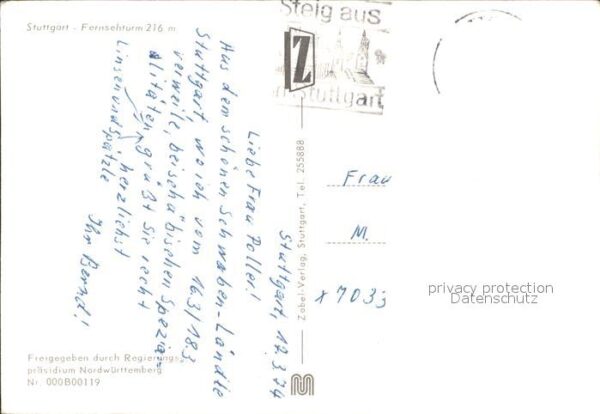 Stuttgart - Fernsehturm 216 m
Steig aus
Z
in Stuttgart
Stuttgart 17.3.74
Liebe Frau Poller!
Aus dem schönen Schwaben-Ländle
Stuttgart, wo ich vom 16.3/18.3.
verweile, bei schwäbischen Spezia-
litäten, grüßt Sie recht
herzlichst
Linsen und Spätzle
Ihr Bernd!
Frau
M.
x 7033
Zobel-Verlag, Stuttgart, Tel. 255888
privacy protection
Datenschutz
Freigegeben durch Regierungs-
präsidium Nordwürttemberg
Nr. 000B00119